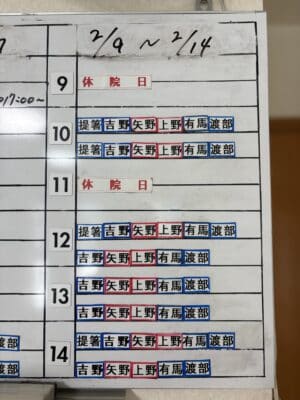 2/9 ~ 2/14
9 休院日
17:00~
10 提箸 吉野 矢野 上野 有馬 渡部
提箸 吉野 矢野 上野 有馬 渡部
11 休院日
12 提箸 吉野 矢野 上野 有馬 渡部
吉野 矢野 上野 有馬 渡部
13 吉野 矢野 上野 有馬 渡部
吉野 矢野 上野 有馬 渡部
渡部 14 提箸 吉野 矢野 上野 有馬 渡部
渡部 吉野 矢野 上野 有馬 渡部